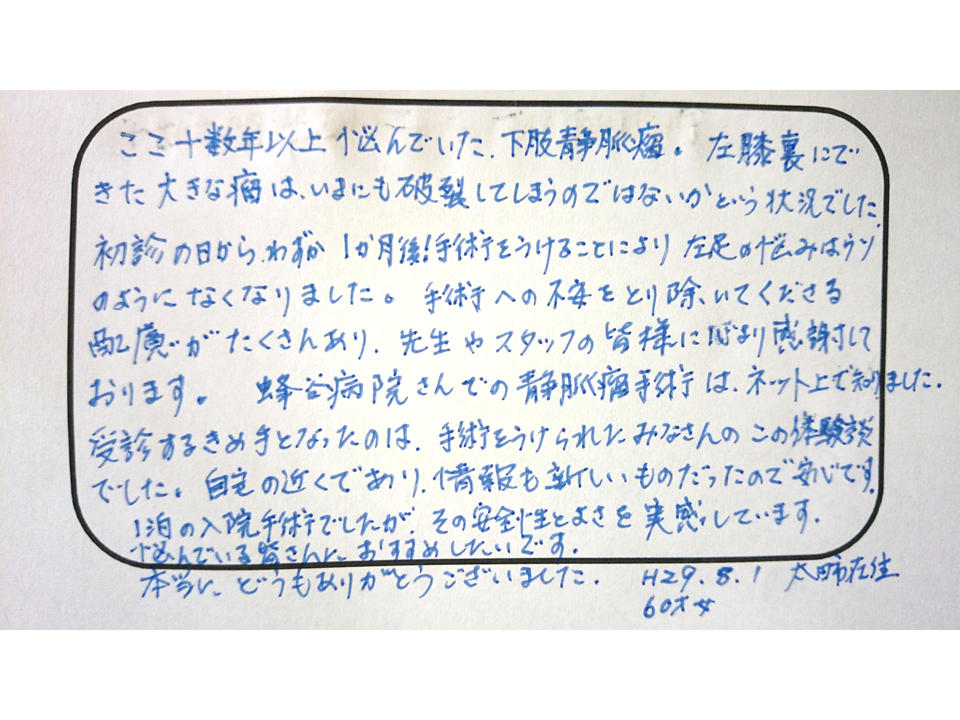 ここ十数年以上悩んでいた、下肢静脈瘤。左膝裏にで
きた大きな瘤は、いまにも破裂してしまうのではないかという状況でした。
初診の日から、わずか1か月後!手術をうけることにより左足の悩みはウソ
のようになくなりました。手術への不安をとり除いてくださる
配慮がたくさんあり、先生やスタッフの皆様に心より感謝して
おります。 蜂谷病院さんでの静脈瘤手術は、ネット上で知りました。
受診するきめ手となったのは、手術をうけられたみなさんのこの体験談
でした。自宅の近くであり、情報も新しいものだったので安心です。
1泊の入院手術でしたが、その安全性とよさを実感しています。
悩んでいる皆さんに、おすすめしたいです。
本当に、どうもありがとうございました。 H29.8.1 太田市在住
60才女